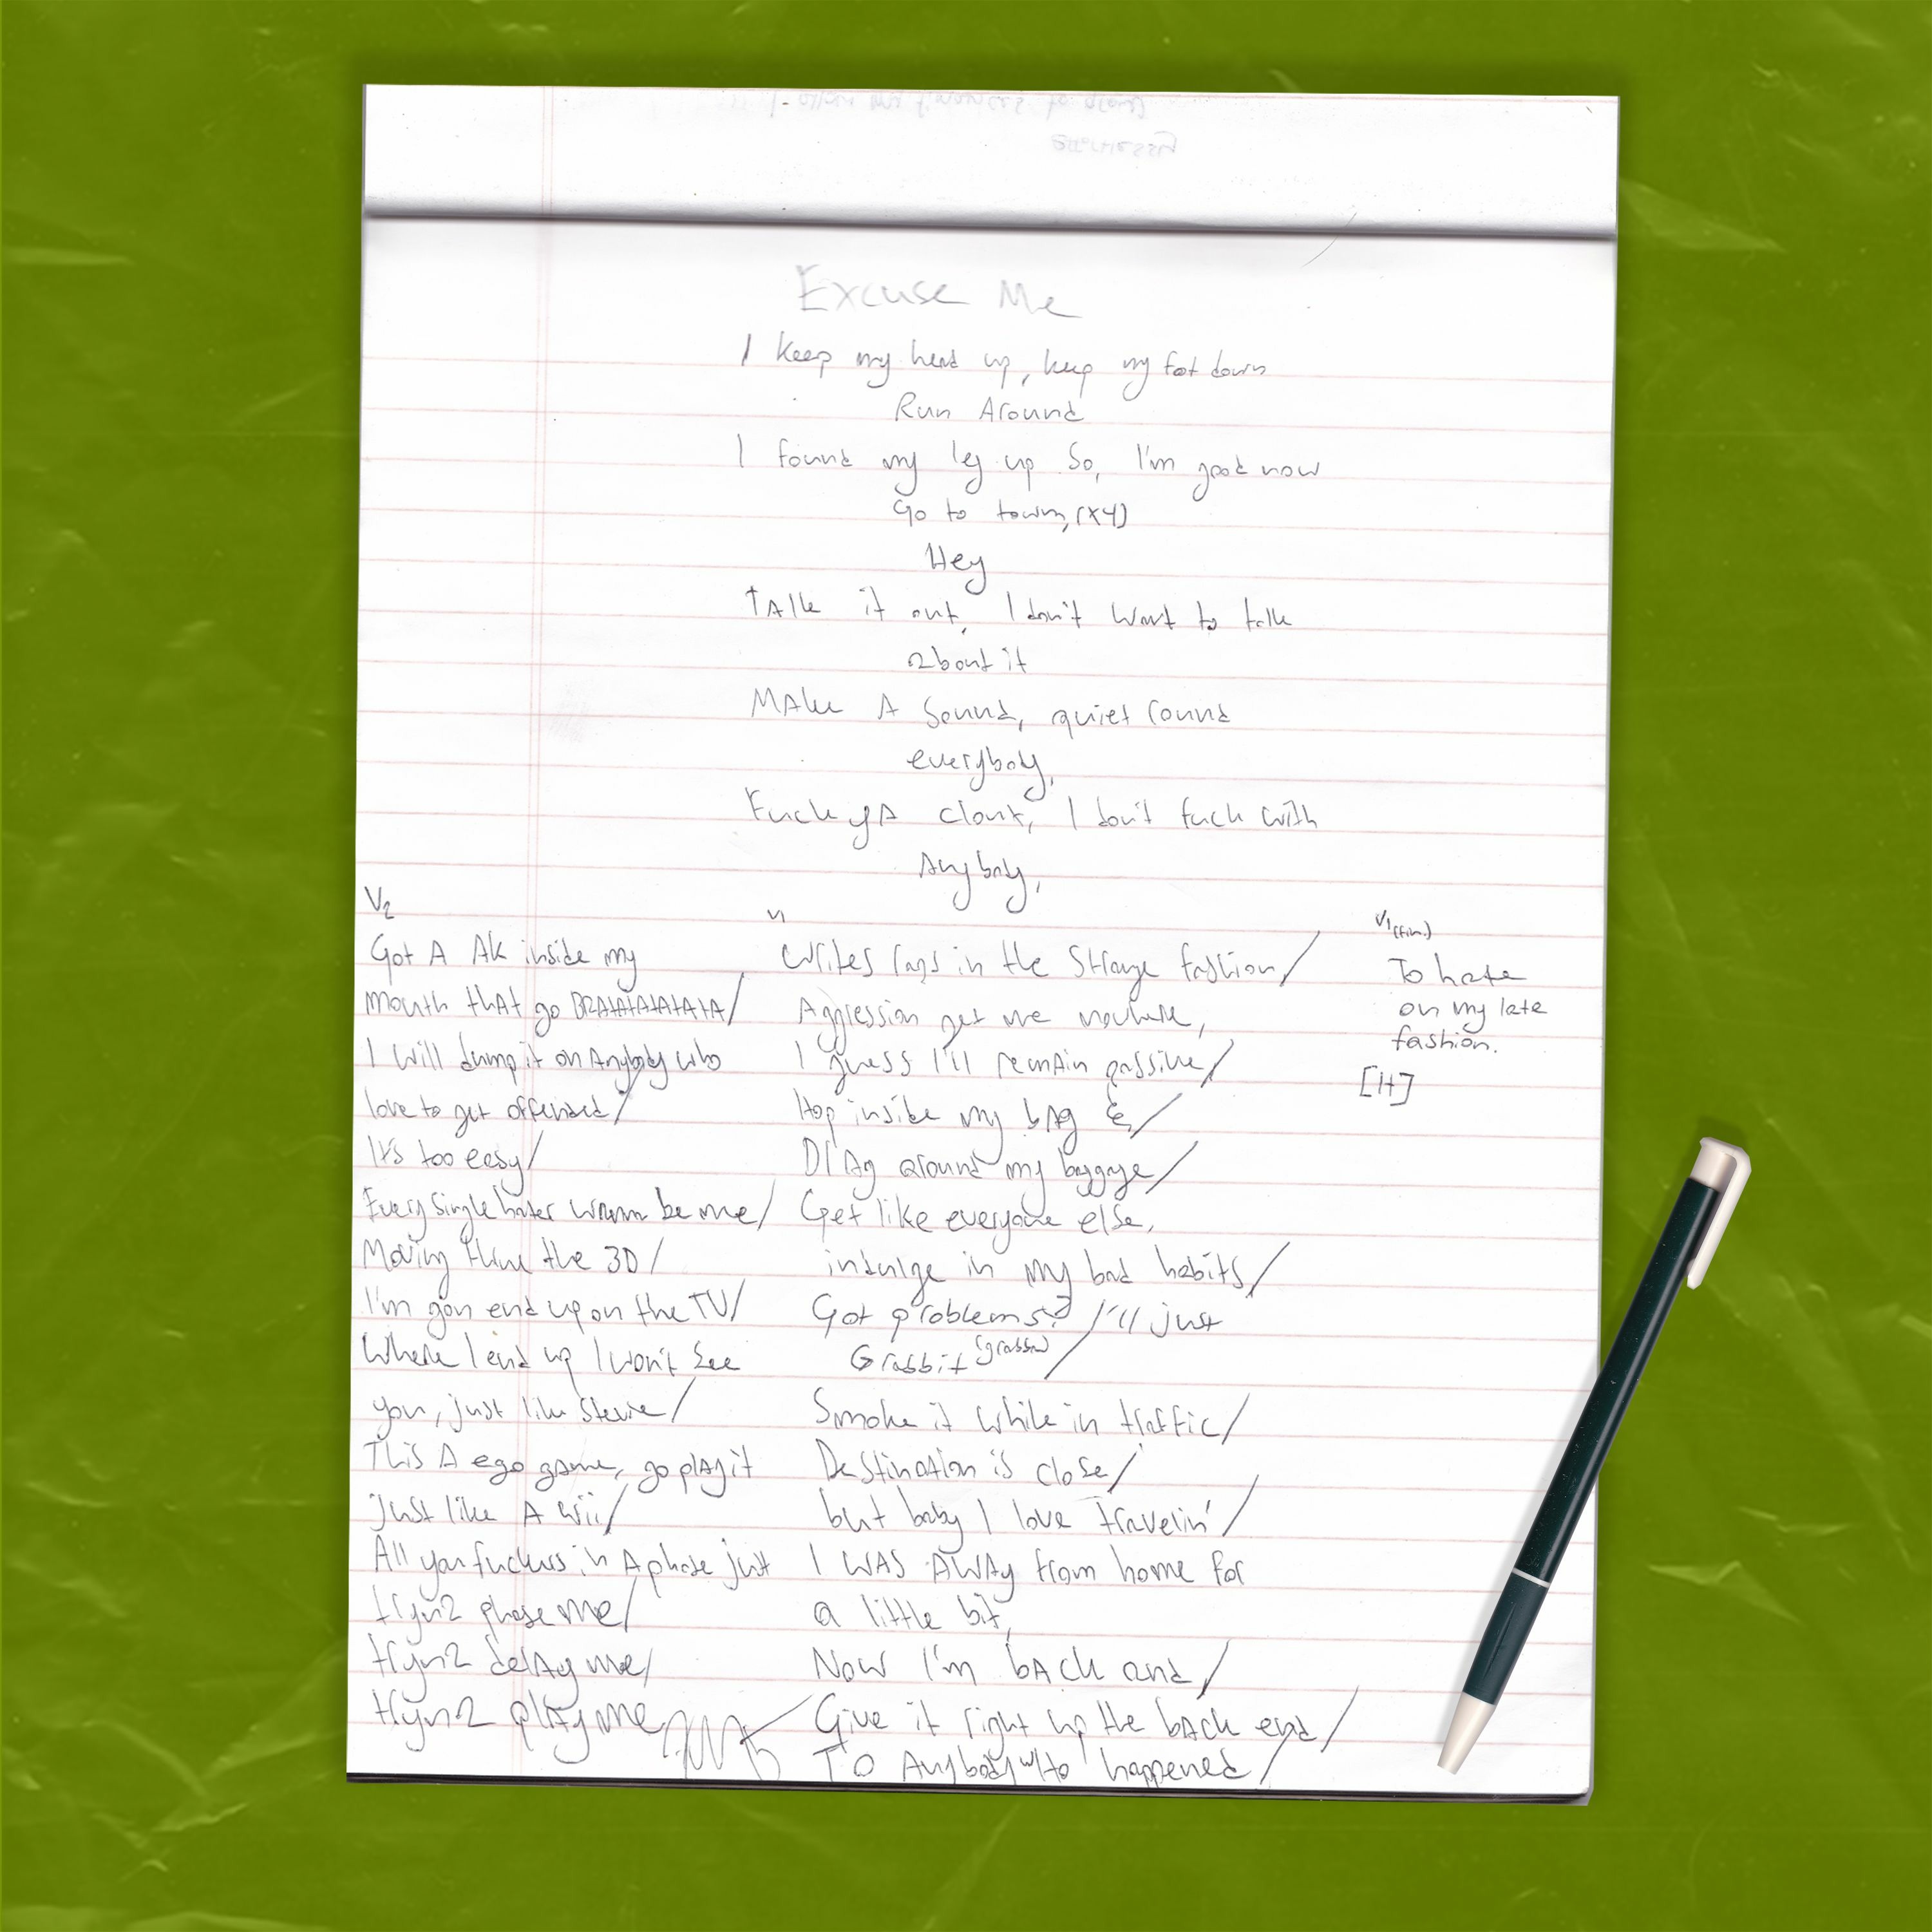 Excuse Me
I keep my head up, keep my foot down
Run Around
I found my leg up so, I'm good now
Go to town, (x4)
Hey
TAlk it out, I don't want to talk
about it
MAke A Sound, quiet round
everybody,
Fuck yA clout, I don't fuck with
Anybody,
V1
Writes raps in the Strange fashion/
Aggression get me nowhere,
I guess I'll remAin passive/
Hop inside my bAg &/
DrAg around my baggage/
Get like everyone else,
indulge in my bad habits/
Got problems? I'll just
Grabbit (grabba)/
Smoke it while in traffic/
DestinAtion is close/
but baby I love travelin'/
I WAS AWAy from home for
a little bit,
Now I'm bAck and/
Give it right up the bAck end/
TO Anybody who happened/
V1 (fin.)
To hate
on my late
fashion.
[H]
V2
Got A AK inside my
mouth thAt go BRATATATATATA/
I will dump it on Anybody who
love to get offended/
It's too easy/
Every single hater wanna be me/
Moving thru the 3D/
I'm gon end up on the TV/
Where I end up I won't see
you, just like Stevie/
This A ego gAme, go plAy it
just like A wii/
All you fuckers in A phase just
tryn2 phase me/
tryn2 delAy me/
tryn2 plAy me